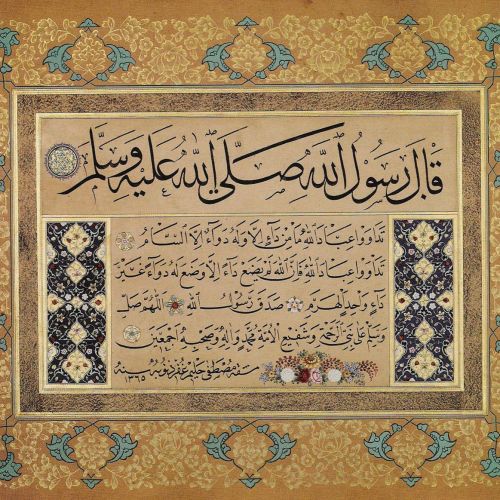 قَالَ رَسُولُ اللّٰهِ صَلَّى اللّٰهُ عَلَيْهِ وَسَلَّمَ
تَدَاوَوْا عِبَادَ اللّٰهِ مَا مِنْ دَاءٍ اِلَّا وَلَهُ دَوَاءٌ اِلَّا السَّامُ
تَدَاوَوْا عِبَادَ اللّٰهِ فَاِنَّ اللّٰهَ لَمْ يَضَعْ دَاءً اِلَّا وَضَعَ لَهُ دَوَاءً غَيْرَ
دَاءٍ وَاحِدٍ الْهَرَمِ صَدَقَ رَسُولُ اللّٰهِ اَللّٰهُمَّ صَلِّ
وَسَلِّمْ عَلَى نَبِيِّ الرَّحْمَةِ وَشَفِيعِ الْاُمَّةِ مُحَمَّدٍ وَاٰلِهِ وَصَحْبِهِ اَجْمَعِينَ
مصطفى حليم غفر ذنوبه سنة ١٣٦٥